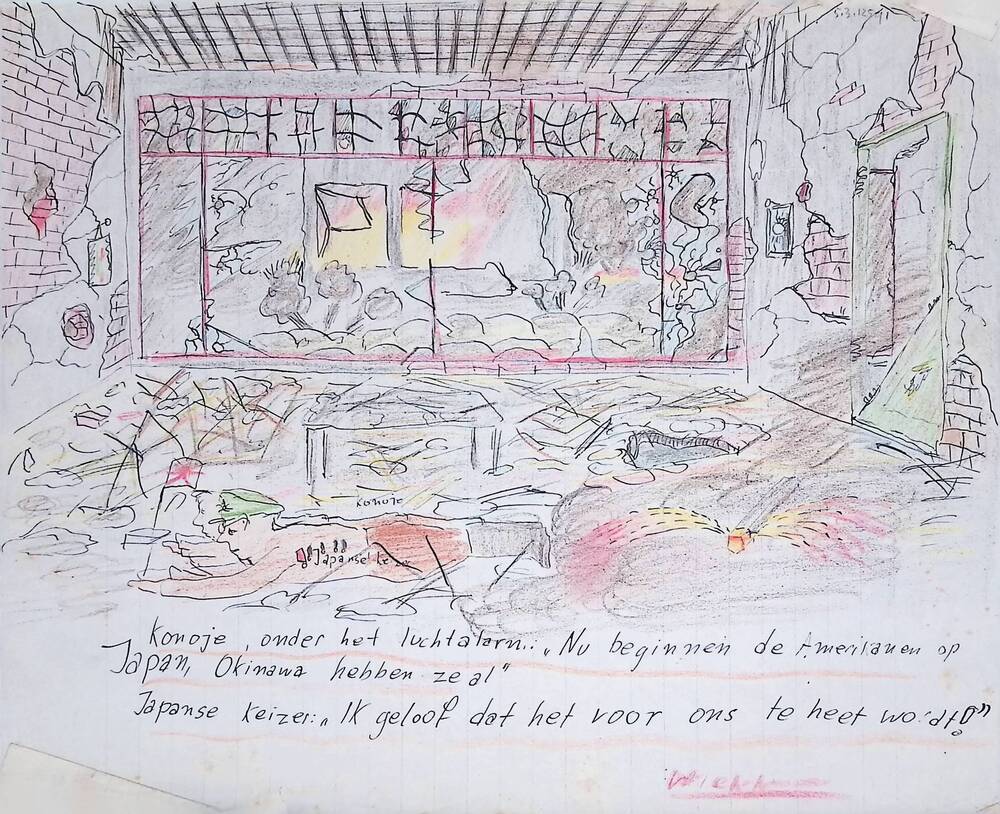 Konoje
Japanse keizer
Konoje, onder het luchtalarm: „Nu beginnen de Amerikanen op
Japan, Okinawa hebben ze al"
Japanse keizer: „IK geloof dat het voor ons te heet wordt!"